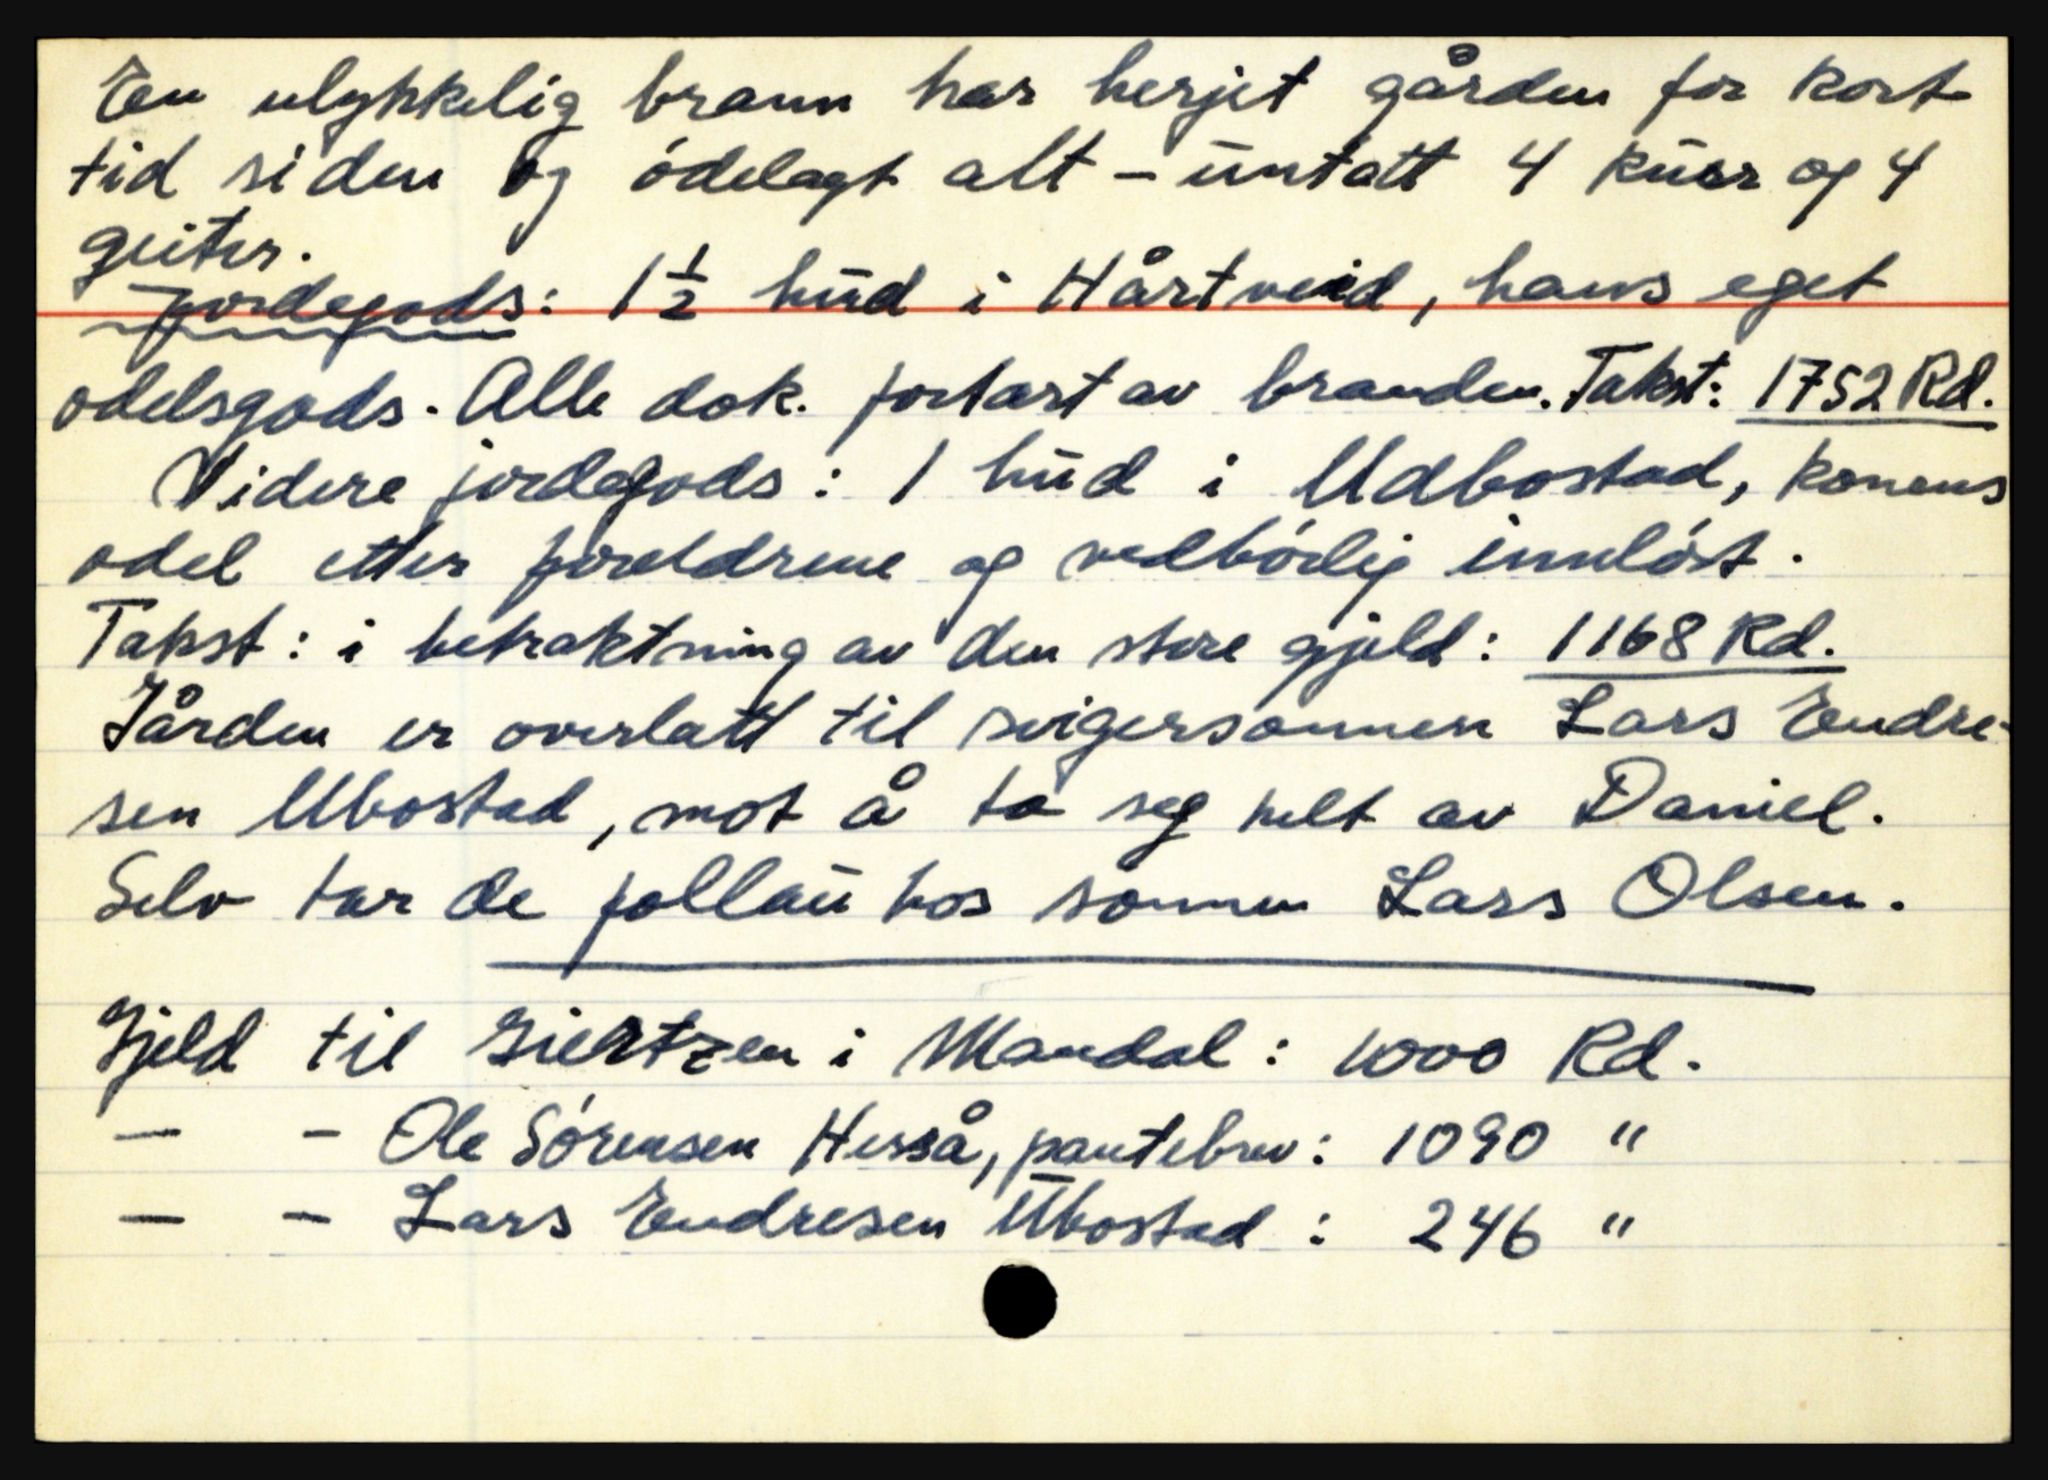 En ulykkelig brann har herjet gården for kort
tid siden og ödelagt alt - untatt 4 kuer og 4
geiter.
Jordegods: 1 1/2 hud i Hårtveid, hans eget
odelsgods. Alle dok. fortært av branden. Takst: 1752 Rd.
Videre jordegods: 1 hud i Udbostad, konens
odel etter foreldrene og vedbörlig innlöst.
Takst: i betraktning av den store gjeld: 1168 Rd.
Gården er overlatt til svigersønnen Lars Endre-
sen Ubostad, mot å ta seg helt av Daniel.
Selv tar de follau hos sönnen Lars Olsen.
Gjeld til Giertzen i Mandal: 1000 Rd.
— - Ole Sörensen Hesså, pantebrev: 1090 "
— - Lars Endresen Ubostad: 246 "